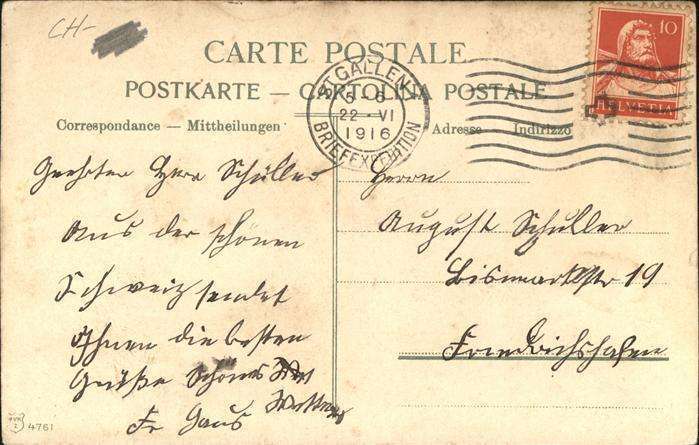 CH-
CARTE POSTALE
POSTKARTE — CARTOLINA POSTALE
Correspondance — Mittheilungen
Adresse — Indirizzo
ST. GALLEN
5-6
22-VI
1916
BRIEFEXPEDITION
10
HELVETIA
Geehrter Herr Schüller
Aus der schönen
Schweiz sendet
Ihnen die besten
Grüße Schönes
Fr Gaus
Herrn
August Schüller
Bismarckstr 19
Friedrichshafen
4761